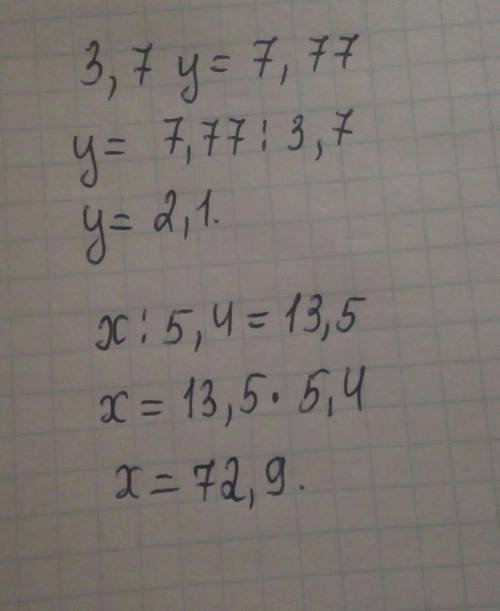 3,7 y = 7,77
y = 7,77 : 3,7
y = 2,1.
x : 5,4 = 13,5
x = 13,5 · 5,4
x = 72,9.